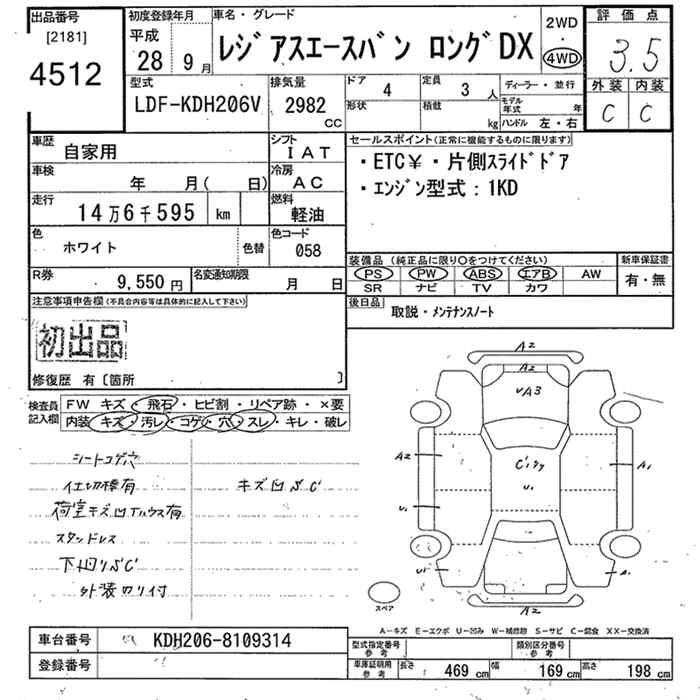 出品番号
[2181]
4512
初度登録年月
平成
28 9月
車名・グレード
レジアスエースバン ロングDX
2WD
・
4WD
評価点
3.5
外装 内装
C C
型式
LDF-KDH206V
排気量
2982
CC
ドア
4
定員
3人
形状
積載
kg
ディーラー・並行
モデル年式 年
ハンドル 左・右
車歴
自家用
シフト
IAT
車検
年 月( 日)
冷房
AC
走行
14万6千595 km
燃料
軽油
色
ホワイト
色替
色コード
058
R券
9,550円
名変通知期限
月 日
セールスポイント(正常に機能するものに限ります)
・ETC¥・片側スライドドア
・エンジン型式:1KD
装備品 (純正品に限り〇をつけてください)
PS PW ABS エアB AW
SR ナビ TV カワ
新車保証書
有・無
後日品
取説・メンテナンスノート
注意事項申告欄(不具合内容等は具体的に記入して下さい)
初出品
修復歴 有〔箇所 〕
検査員記入欄
FW キズ・飛石・ヒビ割・リペア跡・×要
内装 キズ・汚レ・コゲ・穴・スレ・キレ・破レ
シートコゲ穴
仕切棒有
キズ凹サビ
荷室キズ凹Tハウス有
スタッドレス
下回りサビ
外装のり付
A2
A2
UA3
A2
U1
U1
A1
A2
スペア
A－キズ E－エクボ U－凹み W－補修跡 S－サビ C－腐食 XX－交換済
車台番号
KDH206-8109314
登録番号
型式指定番号
参考
類別区分番号
参考
車庫証明用
参考
長さ 469cm 幅 169cm 高さ 198cm